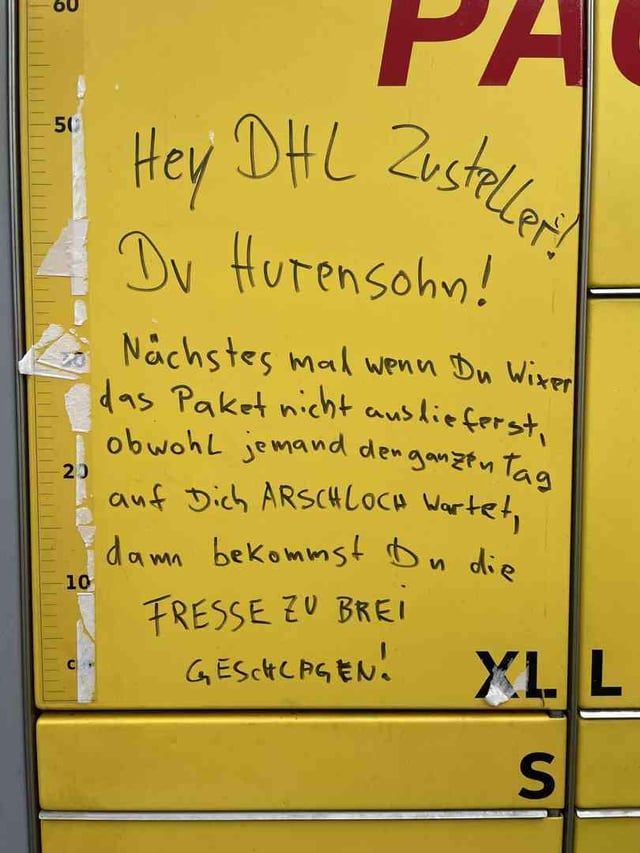 60
PA
50
Hey DHL Zusteller!
Du Hurensohn!
Nächstes mal wenn Du Wixer
das Paket nicht auslieferst,
obwohl jemand den ganzen Tag
20
auf Dich ARSCHLOCH wartet,
dann bekommst Du die
10
FRESSE ZU BREI
GESCHLAGEN!
XL
L
S